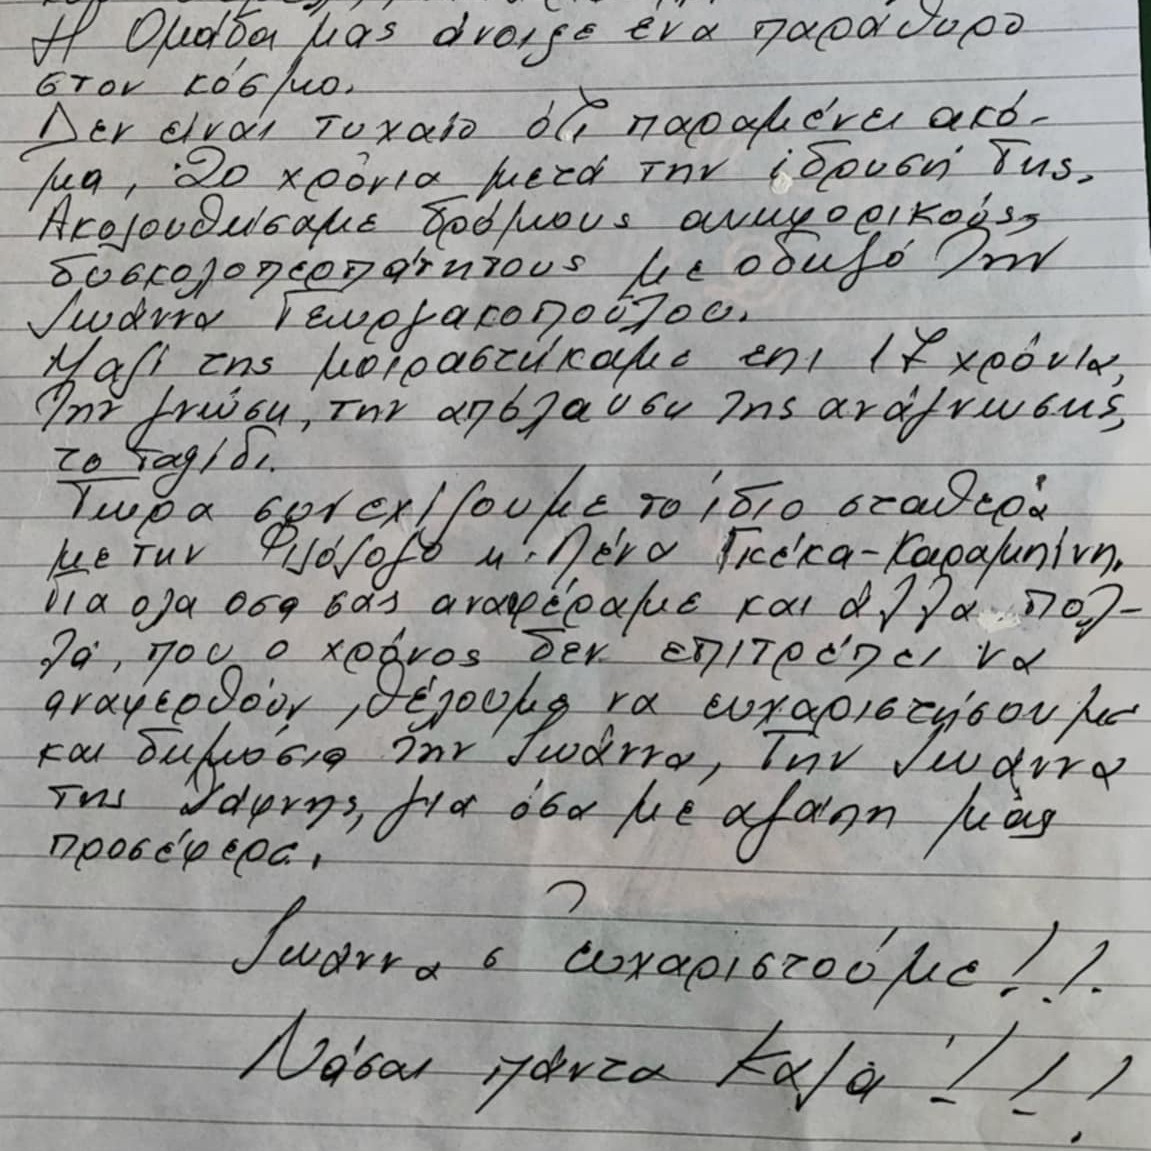 Η Ομάδα μας άνοιξε ένα παράθυρο
στον κόσμο.
Δεν είναι τυχαίο ότι παραμένει ακό-
μα, 20 χρόνια μετά την ίδρυσή της.
Ακολουθήσαμε δρόμους ανηφορικούς,
δυσκολοπερπάτητους με οδηγό την
Ιωάννα Γεωργακοπούλου.
Μαζί της μοιραστήκαμε επί 17 χρόνια,
την γνώση, την απόλαυση της ανάγνωσης,
το ταξίδι.
Τώρα συνεχίζουμε το ίδιο σταθερά
με την Φιλόλογο κ. Λένα Γκέκα-Καραμπίνη.
Για όλα όσα σας αναφέραμε και άλλα πολ-
λά, που ο χρόνος δεν επιτρέπει να
αναφερθούν, θέλουμε να ευχαριστήσουμε
και δημόσια την Ιωάννα, την Ιωάννα
της Δάφνης, για όσα με αγάπη μάς
προσέφερε.
Ιωάννα σ' ευχαριστούμε!!.
Νάσαι πάντα καλά!!!